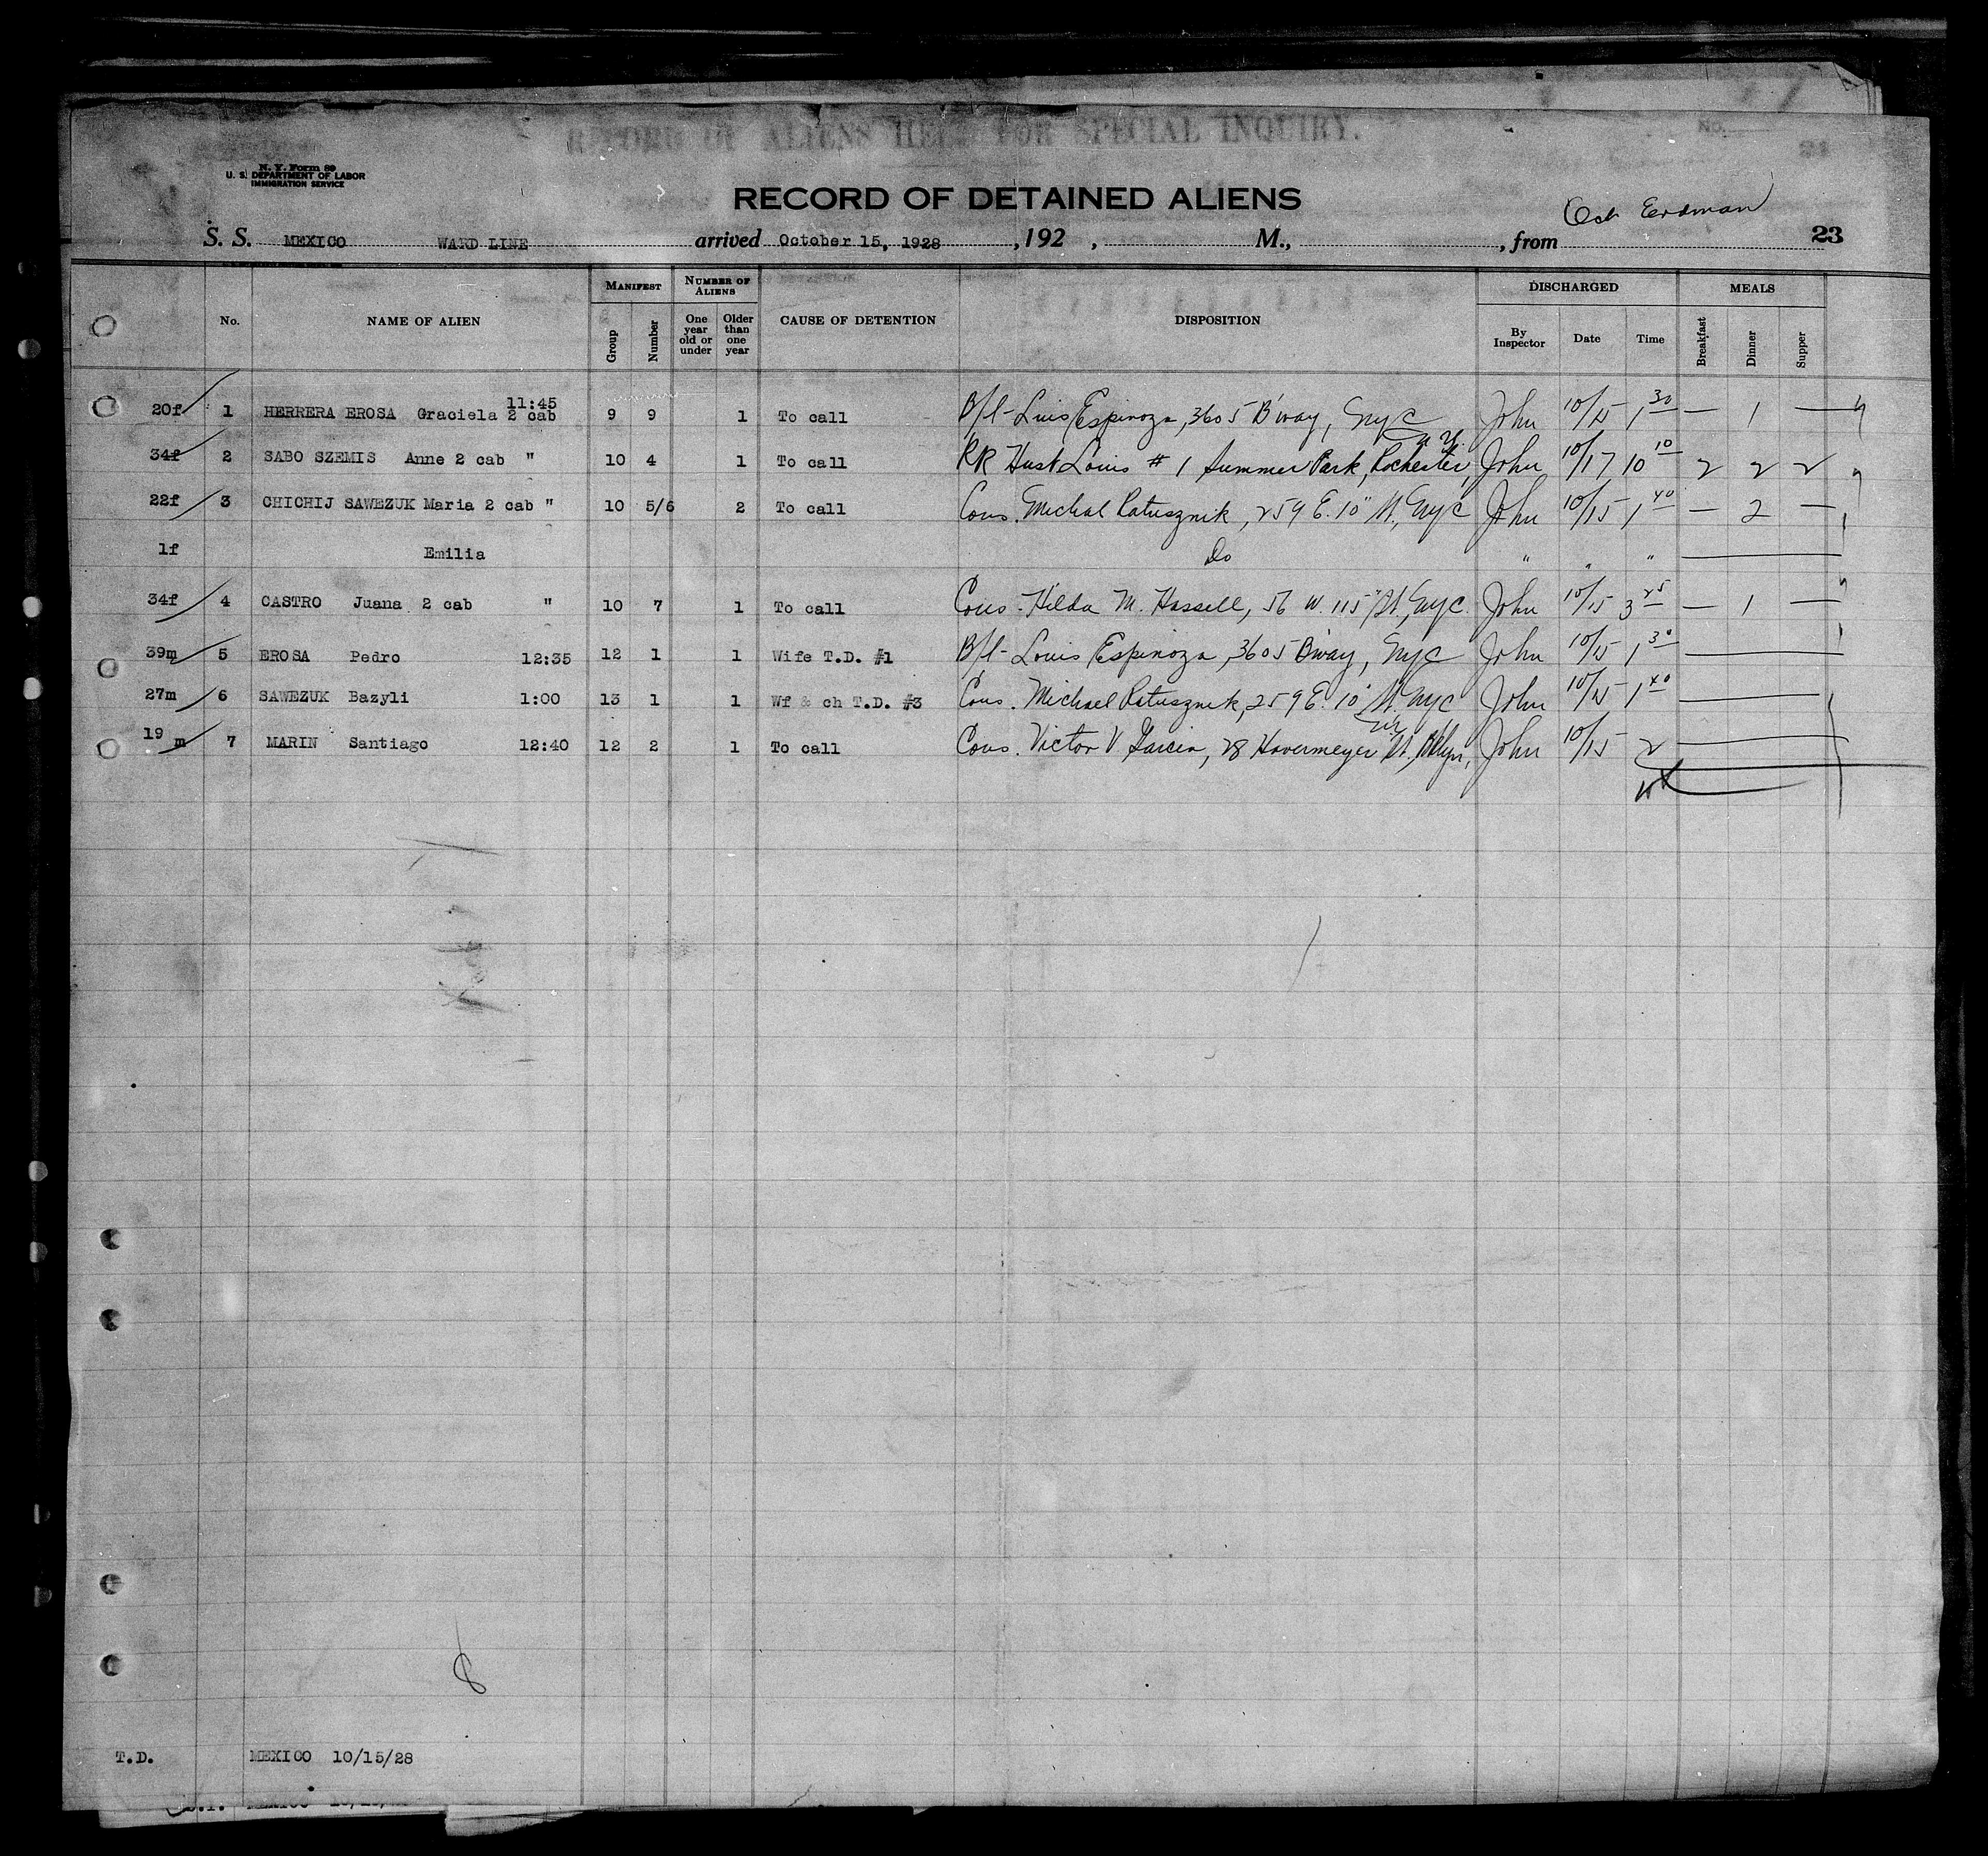 RECORD OF ALIENS HELD FOR SPECIAL INQUIRY.
No.
N. Y. Form 89
U. S. DEPARTMENT OF LABOR
IMMIGRATION SERVICE
RECORD OF DETAINED ALIENS
Erdman
S. S. MEXICO WARD LINE arrived October 15, 1928 , 192 , M., , from 23
MANIFEST NUMBER OF ALIENS DISCHARGED MEALS
No. NAME OF ALIEN Group Number One year old or under Older than one year CAUSE OF DETENTION DISPOSITION By Inspector Date Time Breakfast Dinner Supper
11:45
20f 1 HERRERA EROSA Graciela 2 cab 9 9 1 To call B/l - Luis Espinoza, 3605 B'way, NYC John 10/15 1 30 — 1 —
N.Y.
34f 2 SABO SZEMIS Anne 2 cab " 10 4 1 To call RR Husb Louis # 1 Summer Park, Rochester, John 10/17 10 10 2 2 2
22f 3 CHICHIJ SAWEZUK Maria 2 cab " 10 5/6 2 To call Cous. Michal Ratusznik, 259 E. 10" St, NYC John 10/15 1 40 — 2 —
1f Emilia Do " " "
34f 4 CASTRO Juana 2 cab " 10 7 1 To call Cous. Hilda M. Hassell, 56 W. 115" St, NYC. John 10/15 3 25 — 1 —
39m 5 EROSA Pedro 12:35 12 1 1 Wife T.D. #1 B/l - Louis Espinoza, 3605 B'way, NYC John 10/15 1 30
27m 6 SAWEZUK Bazyli 1:00 13 1 1 Wf & ch T.D. #3 Cous. Michael Ratusznik, 259 E. 10" St. NYC John 10/15 1 40
19 m 7 MARIN Santiago 12:40 12 2 1 To call Cous. Victor V Garcia, 28 Havermeyer St. Bklyn, John 10/15 2
8
T.D. MEXICO 10/15/28